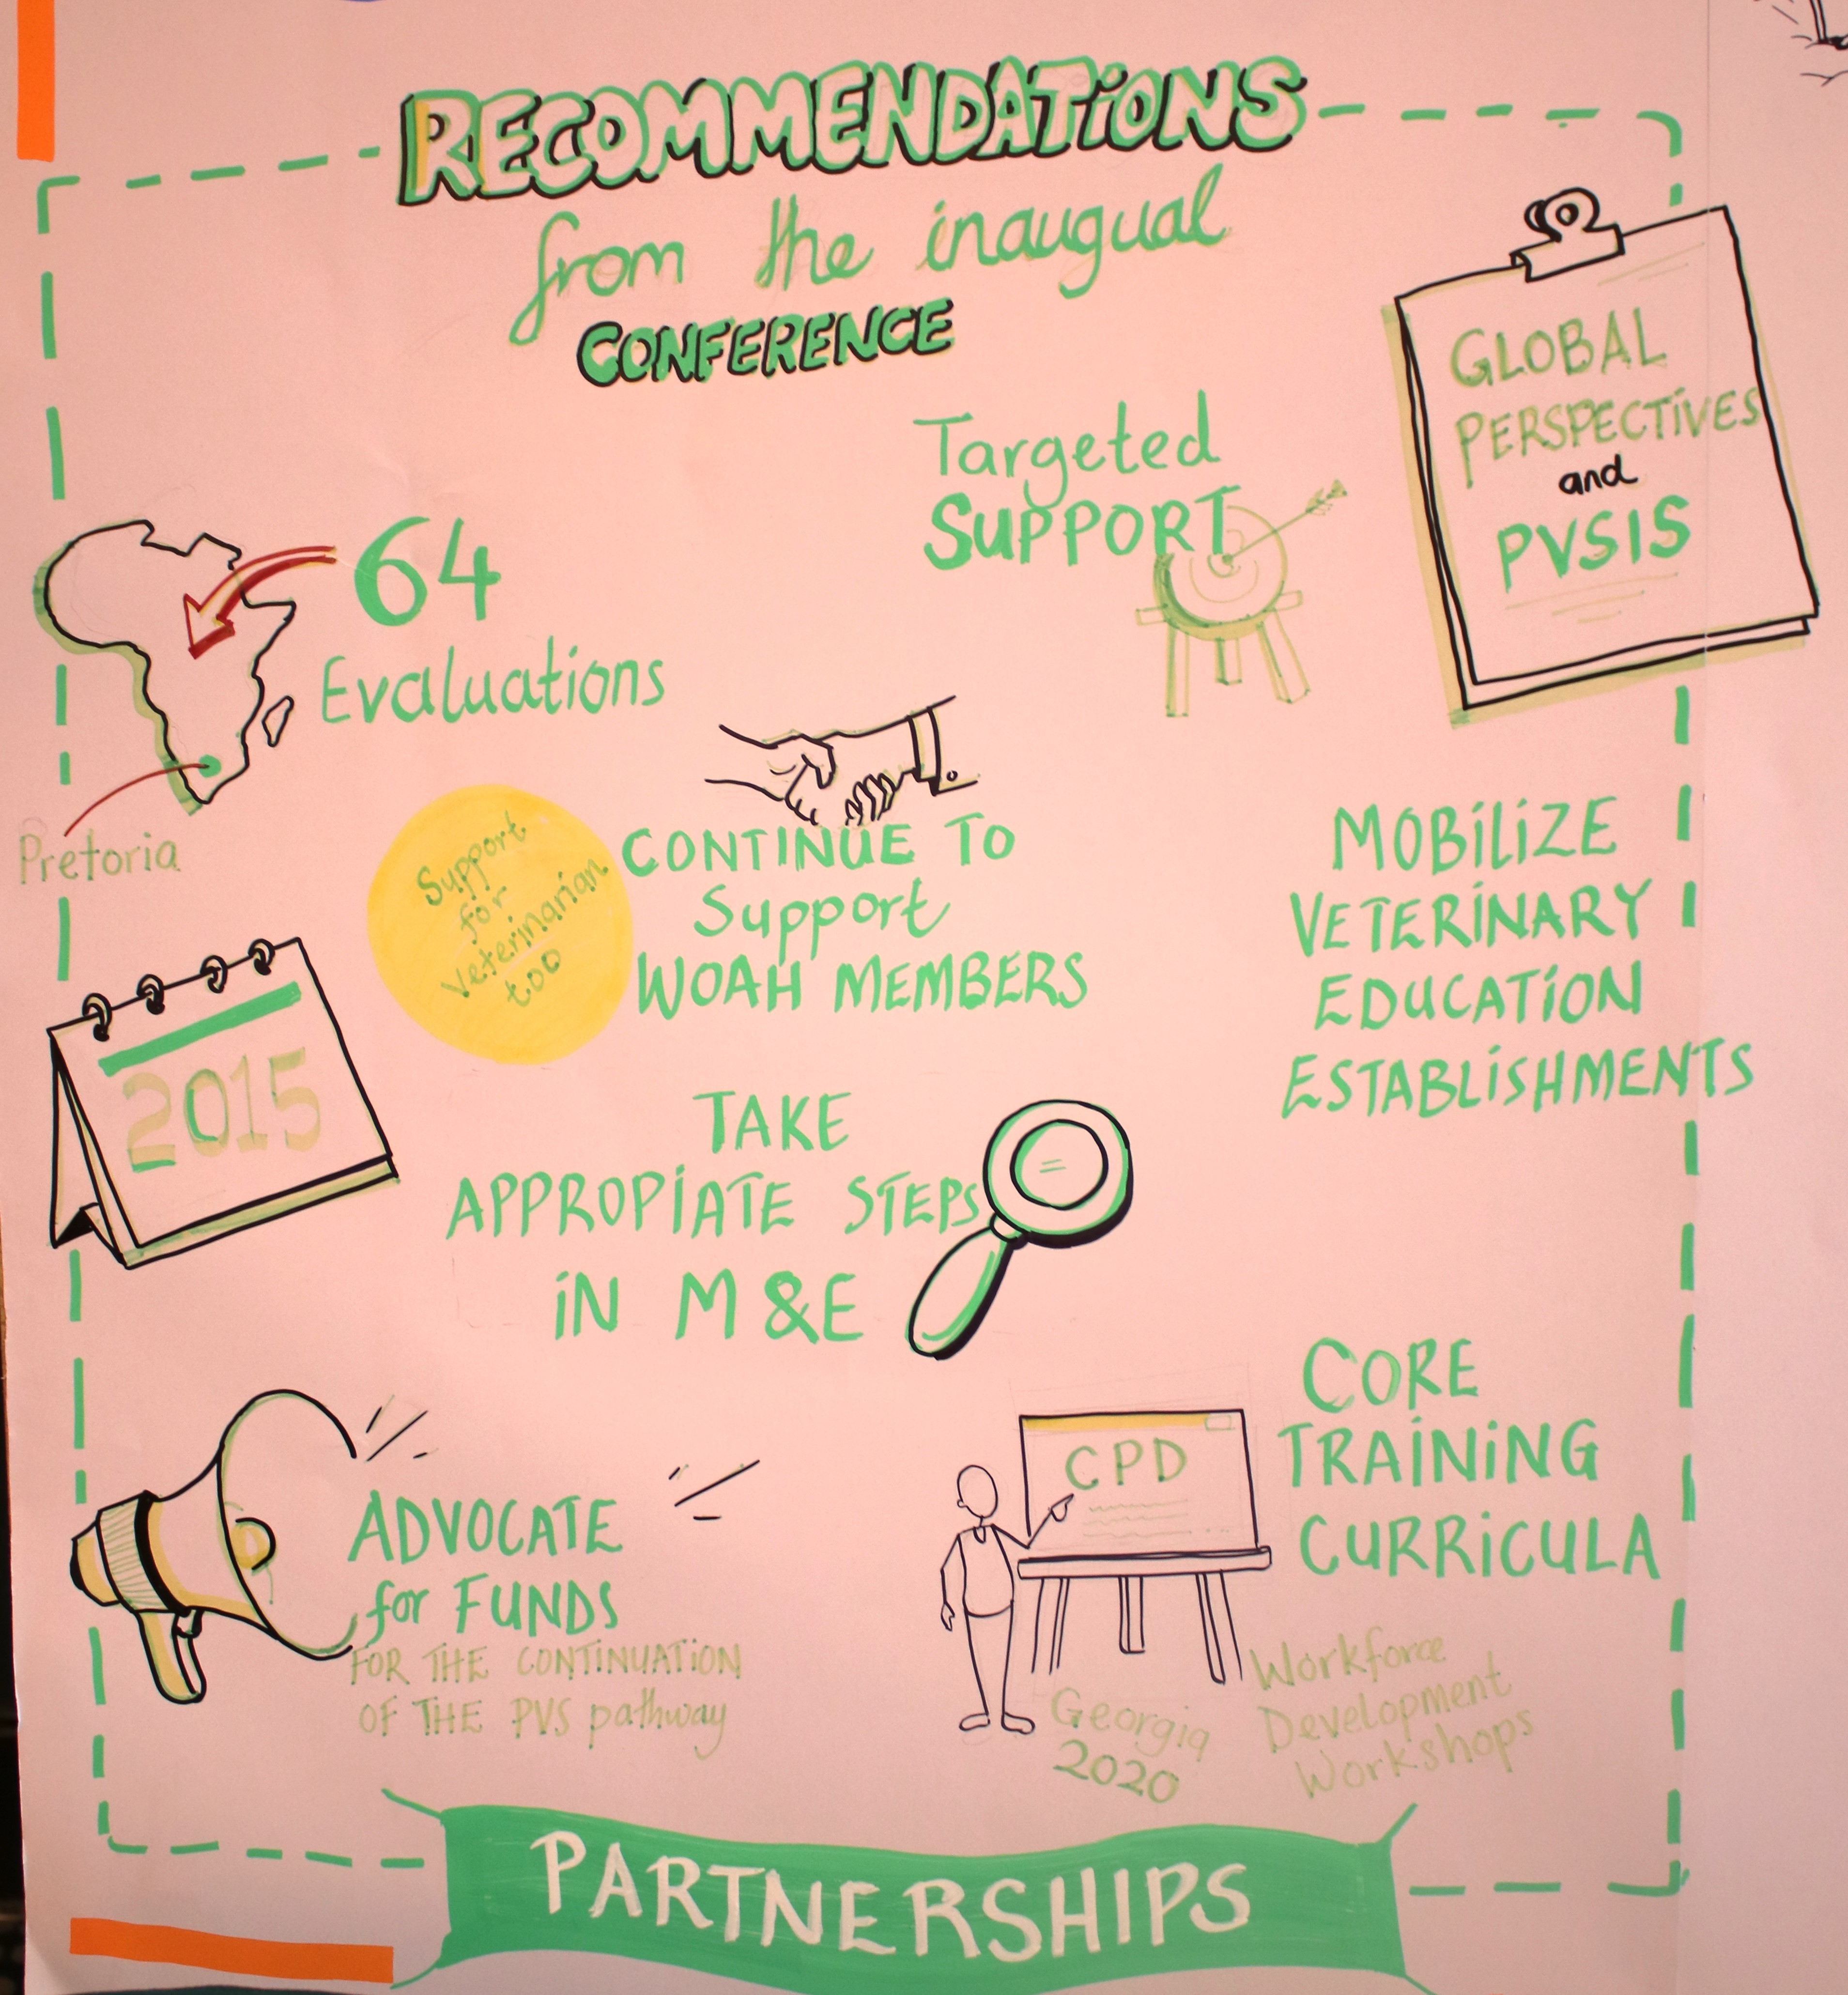 RECOMMENDATiONS
from the inaugual
CONFERENCE
GLOBAL
PERSPECTiVES
and
PVSIS
Targeted
SUPPORT
64
Evaluations
Pretoria
Support
for
Veterinarian
too
CONTINUE TO
Support
WOAH MEMBERS
MOBiLiZE
VETERiNARY
EDUCATiON
ESTABLiSHMENTS
2015
TAKE
APPROPiATE STEPS
iN M &E
ADVOCATE
for FUNDS
FOR THE CONTINUATION
OF THE PVS pathway
CPD
CORE
TRAiNiNG
CURRiCULA
Georgia
2020
Workforce
Development
Workshops
PARTNERSHIPS